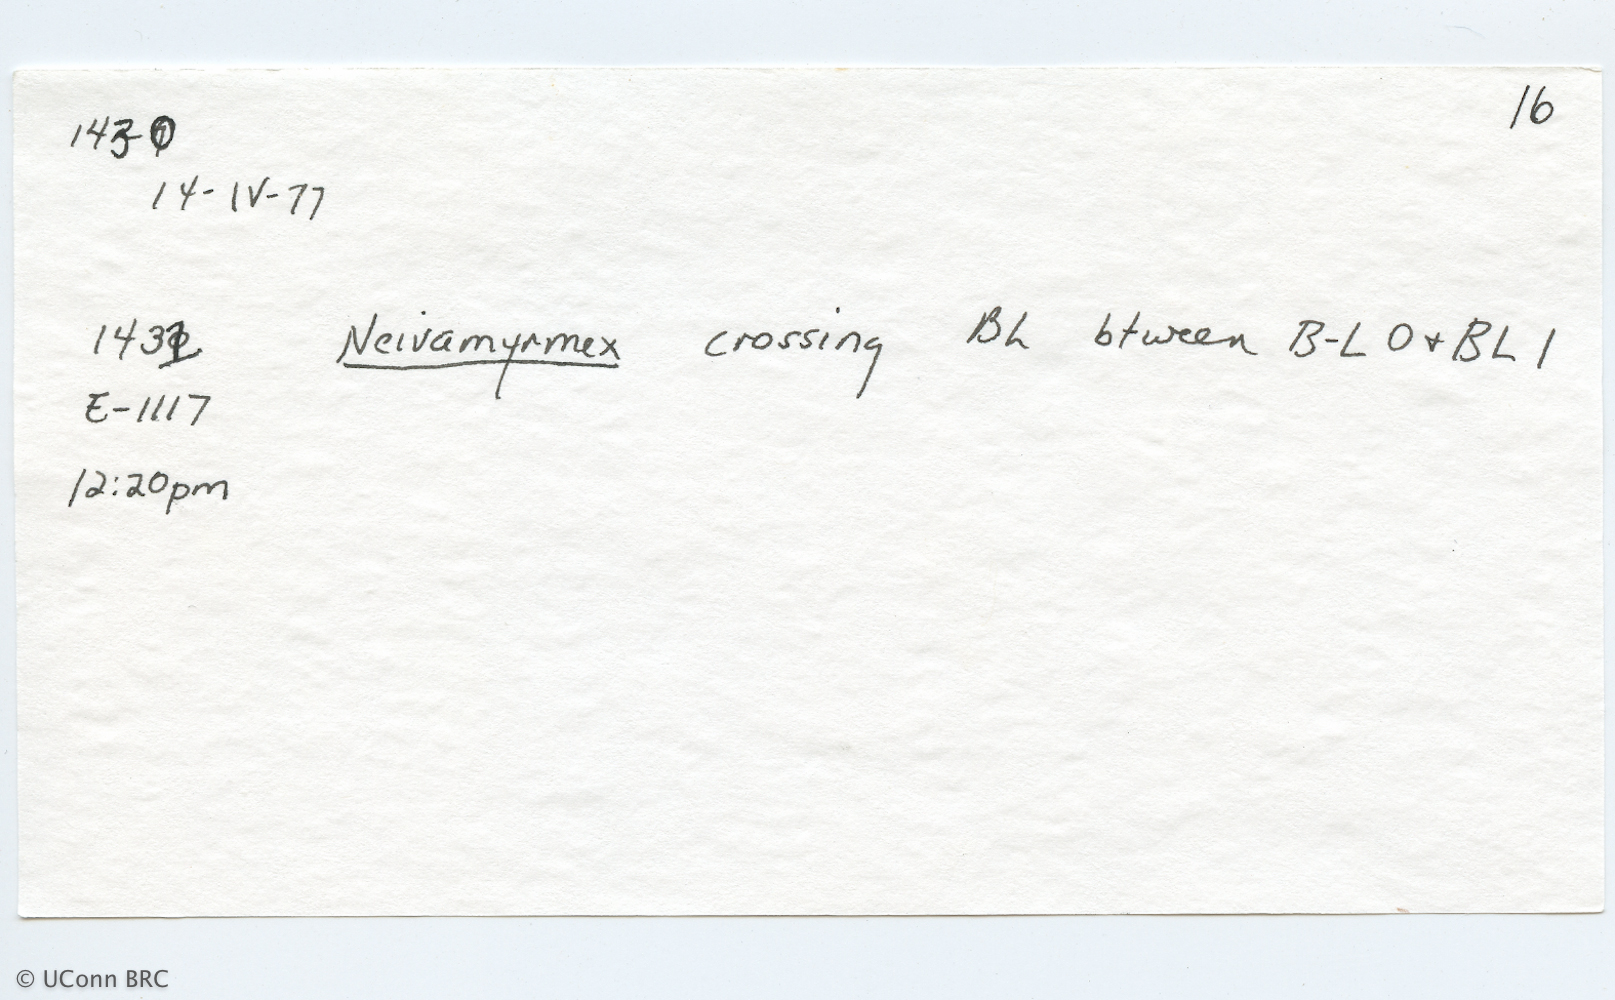 16
1430
14-IV-77
1431 Neivamyrmex crossing BL btween B-L 0 + BL 1
E-1117
12:20pm
© UConn BRC